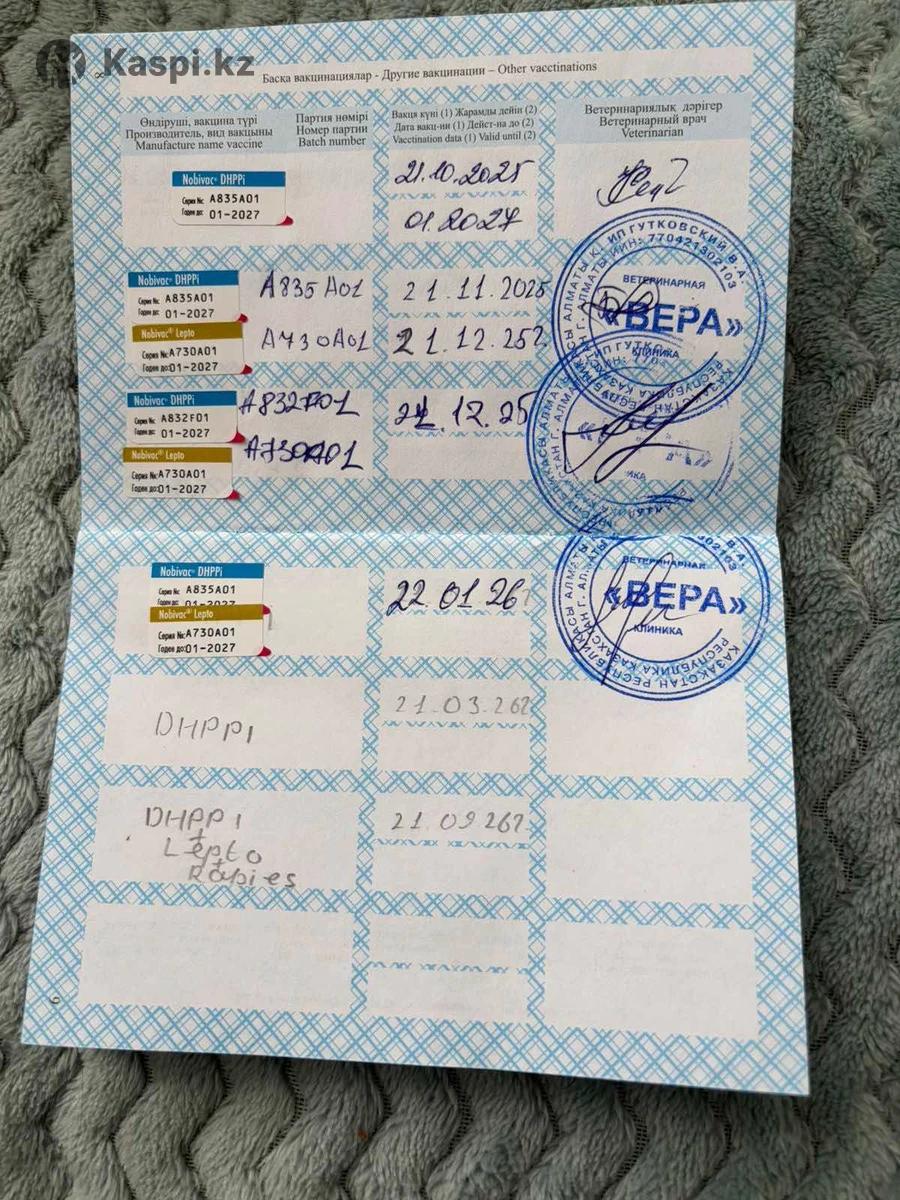 Kaspi.kz
8
Баска вакцинациялар - Другие вакцинации – Other vacctinations
Өндіруші, вакцина түрі
Производитель, вид вакцыны
Manufacture name vaccine
Партия нөмірі
Номер партии
Batch number
Вакця күні (1) Жарамды дейін (2)
Дата вакц-ии (1) Дейст-на до (2)
Vacctination data (1) Valid until (2)
Ветеринариялық дәрігер
Ветеринарный врач
Veterinarian
Nobivac® DHPPi
Серия №: A835A01
Годен до: 01-2027
21.10.2025
01.2027
Nobivac® DHPPi
Серия №: A835A01
Годен до: 01-2027
A835A01
21.11.2025
Nobivac® Lepto
Серия №: A730A01
Годен до: 01-2027
A730A01
21.12.252
ИП ГУТКОВСКИЙ В.А.
ИИН: 770421302103
ВЕТЕРИНАРНАЯ
«ВЕРА»
КЛИНИКА
Nobivac® DHPPi
Серия №: A832F01
Годен до: 01-2027
A832F01
21.12.25
Nobivac® Lepto
Серия №: A730A01
Годен до: 01-2027
A730A01
Nobivac® DHPPi
Серия №: A835A01
Годен до: 01-2027
Nobivac® Lepto
Серия №: A730A01
Годен до: 01-2027
22.01.26
ВЕТЕРИНАРНАЯ
«ВЕРА»
КЛИНИКА
ҚАЗАҚСТАН РЕСПУБЛИКАСЫ АЛМАТЫ
РЕСПУБЛИКА КАЗАХСТАН Г. АЛМАТЫ
DHPPI
21.03.262
DHPPI
+
Lepto
+
Rabies
21.09.262
9